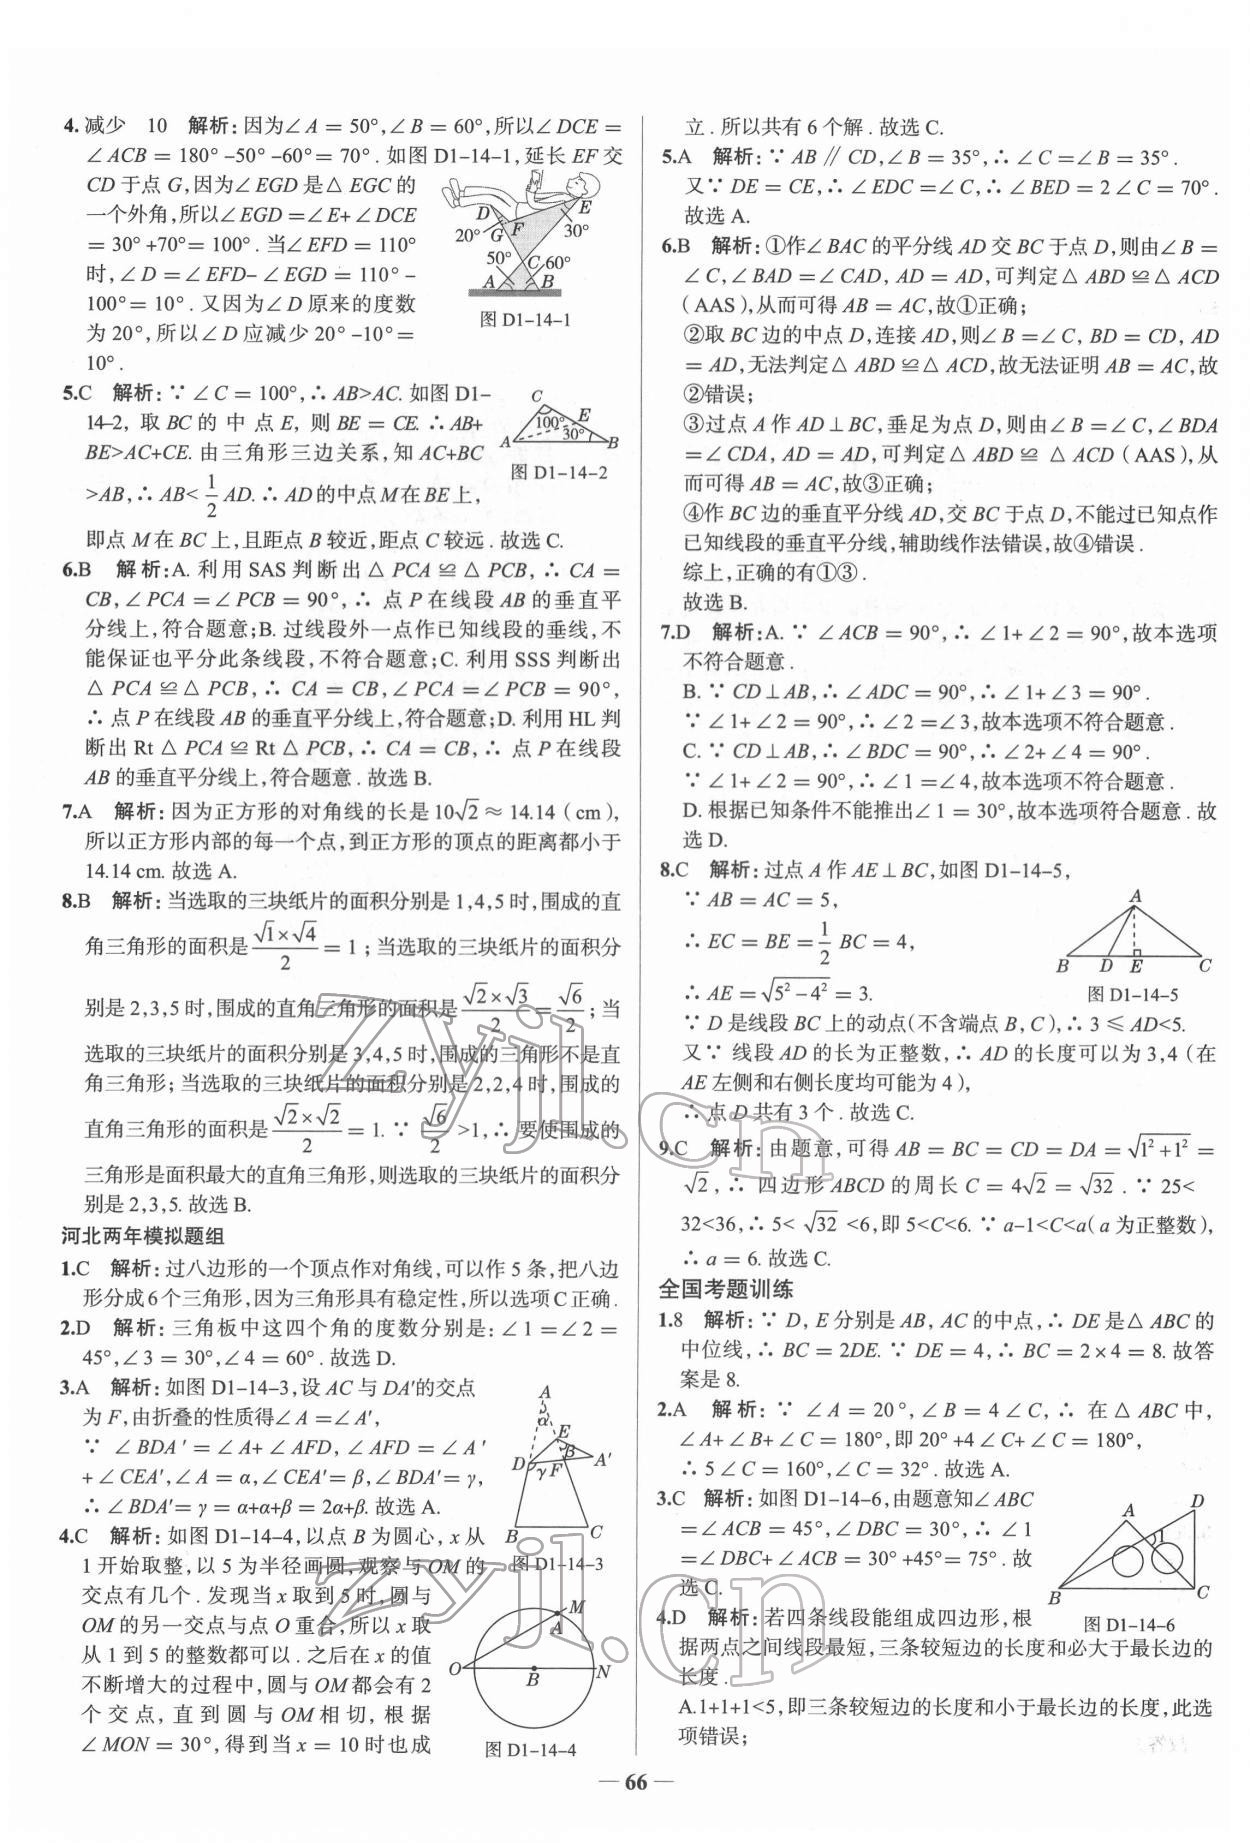 4. 减少 10 解析:因为∠A=50°,∠B=60°,所以∠DCE=
∠ACB=180°-50°-60°=70°.如图D1-14-1,延长EF交
CD于点G,因为∠EGD是△EGC的
一个外角,所以∠EGD=∠E+∠DCE
=30°+70°=100°.当∠EFD=110°
时,∠D=∠EFD-∠EGD=110°-
100°=10°.又因为∠D原来的度数
为20°,所以∠D应减少20°-10°=
10°.
D
E
20°
G
F
30°
50°
C
60°
A
B
图D1-14-1
5.C 解析:∵∠C=100°,∴AB>AC.如图D1-
14-2,取BC的中点E,则BE=CE.∴AB+
BE>AC+CE.由三角形三边关系,知AC+BC
>AB,∴AB<1/2AD.∴AD的中点M在BE上,
即点M在BC上,且距点B较近,距点C较远.故选C.
C
E
100°
30°
A
B
图D1-14-2
6.B 解析:A.利用SAS判断出△PCA≌△PCB,∴CA=
CB,∠PCA=∠PCB=90°,∴点P在线段AB的垂直平
分线上,符合题意;B.过线段外一点作已知线段的垂线,不
能保证也平分此条线段,不符合题意;C.利用SSS判断出
△PCA≌△PCB,∴CA=CB,∠PCA=∠PCB=90°,
∴点P在线段AB的垂直平分线上,符合题意;D.利用HL判
断出Rt△PCA≌Rt△PCB,∴CA=CB,∴点P在线段
AB的垂直平分线上,符合题意.故选B.
7.A 解析:因为正方形的对角线的长是10√2≈14.14(cm),
所以正方形内部的每一个点,到正方形的顶点的距离都小于
14.14 cm.故选A.
8.B 解析:当选取的三块纸片的面积分别是1,4,5时,围成的直
角三角形的面积是(√1×√4)/2=1;当选取的三块纸片的面积分
别是2,3,5时,围成的直角三角形的面积是(√2×√3)/2=√6/2;当
选取的三块纸片的面积分别是3,4,5时,围成的三角形不是直
角三角形;当选取的三块纸片的面积分别是2,2,4时,围成的
直角三角形的面积是(√2×√2)/2=1.∵√6/2>1,∴要使围成的
三角形是面积最大的直角三角形,则选取的三块纸片的面积分
别是2,3,5.故选B.
河北两年模拟题组
1.C 解析:过八边形的一个顶点作对角线,可以作5条,把八边
形分成6个三角形,因为三角形具有稳定性,所以选项C正确.
2.D 解析:三角板中这四个角的度数分别是:∠1=∠2=
45°,∠3=30°,∠4=60°.故选D.
3.A 解析:如图D1-14-3,设AC与DA′的交点
为F,由折叠的性质得∠A=∠A′,
∵∠BDA′=∠A+∠AFD,∠AFD=∠A′
+∠CEA′,∠A=α,∠CEA′=β,∠BDA′=γ,
∴∠BDA′=γ=α+α+β=2α+β.故选A.
A
α
E
β
D
γ
F
A′
B
C
图D1-14-3
4.C 解析:如图D1-14-4,以点B为圆心,x从
1开始取整,以5为半径画圆,观察与OM的
交点有几个.发现当x取到5时,圆与
OM的另一交点与点O重合,所以x取
从1到5的整数都可以.之后在x的值
不断增大的过程中,圆与OM都会有2
个交点,直到圆与OM相切,根据
∠MON=30°,得到当x=10时也成
M
A
O
B
N
图D1-14-4
立.所以共有6个解.故选C.
5.A 解析:∵AB∥CD,∠B=35°,∴∠C=∠B=35°.
又∵DE=CE,∴∠EDC=∠C,∴∠BED=2∠C=70°.
故选A.
6.B 解析:①作∠BAC的平分线AD交BC于点D,则由∠B=
∠C,∠BAD=∠CAD,AD=AD,可判定△ABD≌△ACD
(AAS),从而可得AB=AC,故①正确;
②取BC边的中点D,连接AD,则∠B=∠C,BD=CD,AD
=AD,无法判定△ABD≌△ACD,故无法证明AB=AC,故
②错误;
③过点A作AD⊥BC,垂足为点D,则由∠B=∠C,∠BDA
=∠CDA,AD=AD,可判定△ABD≌△ACD(AAS),从
而可得AB=AC,故③正确;
④作BC边的垂直平分线AD,交BC于点D,不能过已知点作
已知线段的垂直平分线,辅助线作法错误,故④错误.
综上,正确的有①③.
故选B.
7.D 解析:A.∵∠ACB=90°,∴∠1+∠2=90°,故本选项
不符合题意.
B.∵CD⊥AB,∴∠ADC=90°,∴∠1+∠3=90°.
∵∠1+∠2=90°,∴∠2=∠3,故本选项不符合题意.
C.∵CD⊥AB,∴∠BDC=90°,∴∠2+∠4=90°.
∵∠1+∠2=90°,∴∠1=∠4,故本选项不符合题意.
D.根据已知条件不能推出∠1=30°,故本选项符合题意.故
选D.
8.C 解析:过点A作AE⊥BC,如图D1-14-5,
∵AB=AC=5,
∴EC=BE=1/2BC=4,
∴AE=√(5²-4²)=3.
A
B
D
E
C
图D1-14-5
∵D是线段BC上的动点(不含端点B,C),∴3≤AD<5.
又∵线段AD的长为正整数,∴AD的长度可以为3,4(在
AE左侧和右侧长度均可能为4),
∴点D共有3个.故选C.
9.C 解析:由题意,可得AB=BC=CD=DA=√(1²+1²)=
√2,∴四边形ABCD的周长C=4√2=√32.∵25<
32<36,∴5<√32<6,即5<C<6.∵a-1<C<a(a为正整数),
∴a=6.故选C.
全国考题训练
1.8 解析:∵D,E分别是AB,AC的中点,∴DE是△ABC的
中位线,∴BC=2DE.∵DE=4,∴BC=2×4=8.故答
案是8.
2.A 解析:∵∠A=20°,∠B=4∠C,∴在△ABC中,
∠A+∠B+∠C=180°,即20°+4∠C+∠C=180°,
∴5∠C=160°,∠C=32°.故选A.
3.C 解析:如图D1-14-6,由题意知∠ABC
=∠ACB=45°,∠DBC=30°,∴∠1
=∠DBC+∠ACB=30°+45°=75°.故
选C.
D
A
1
B
C
图D1-14-6
4.D 解析:若四条线段能组成四边形,根
据两点之间线段最短,三条较短边的长度和必大于最长边的
长度.
A.1+1+1<5,即三条较短边的长度和小于最长边的长度,此选
项错误;
zyjl.cn
zyjl.cn
— 66 —